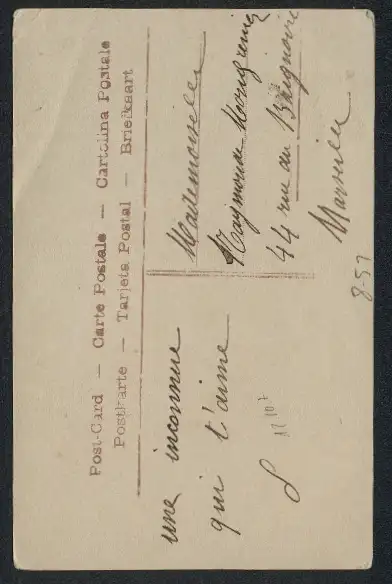 Post-Card — Carte Postale — Cartolina Postale
Postkarte — Tarjeta Postal — Briefkaart
une inconnue
qui t'aime
Mademoiselle
Raymonde
44 rue du
Marseille
8-57